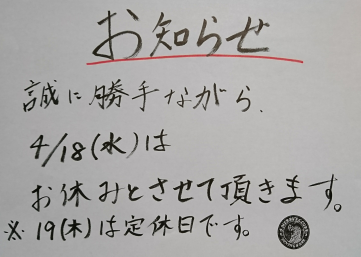 お知らせ
誠に勝手ながら、
4/18(水)は
お休みとさせて頂きます。
※19(木)は定休日です。